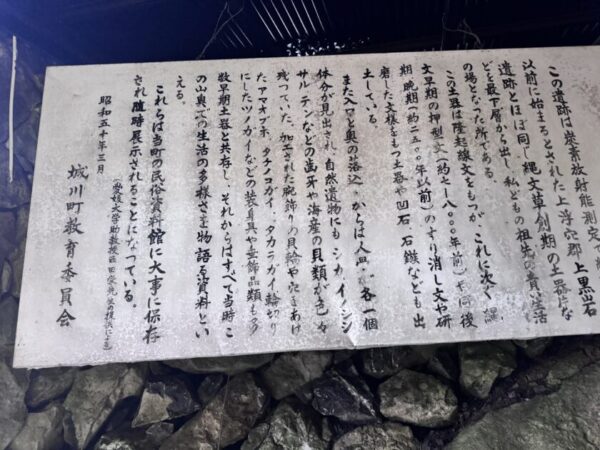 この遺跡は炭素放射能測定で
以前に始まるとされた上浮穴郡上黒岩
遺跡とほぼ同じ縄文草創期の土器片な
どを最下層から出し、私どもの祖先の貴
の場となった所である。
この土器は隆起線文をもつが、これに次ぐ縄
文早期の押型文(約七~八、〇〇〇年前)
期、晩期(約二五〇〇年以前)のすり消し文や研
磨した文様をもつ土器や凹石、石鏃なども出
土している
また入口や奥の落込 からは人 各一個
体分が見出され、自然遺物にも シカ、イノシシ
サル、テンなどの歯牙や海産の貝類が色々
残っていた。加工された腕飾りの貝輪や穴をあけ
たアマオブネ、タチノコガイ、タカラガイ、輪切り
にしたツノガイなどの装身具や垂飾品類も多
数早期土器と共存し、それからはすべて当時こ
の山奥での生活の多様さを物語る資料とい
える。
これらは当町の民俗資料館に大事に保存
され随時展示されることになっている。
(愛媛大学助教授
昭和五十年三月
城川町教育委員会